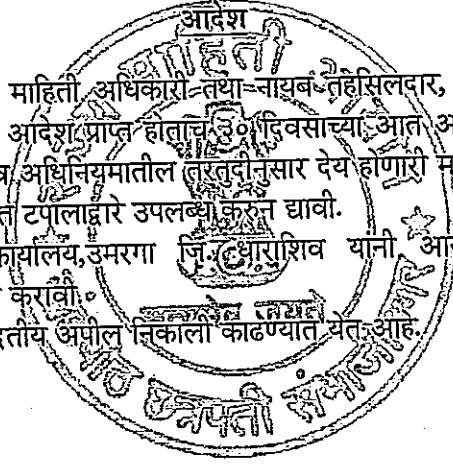 आदेश
माहिती अधिकारी तथा नायब तहसिलदार,
आदेश प्राप्त होताच ३० दिवसाच्या आत अ
अधिनियमातील तरतुदीनुसार देय होणारी म
टपालाद्वारे उपलब्ध करुन द्यावी.
कार्यालय,उमरगा जि. धाराशिव यांनी आ
करावी.
अपील निकाली काढण्यात येत आहे.
माहिती
सत्यमेव जयते
छत्रपती संभाजीनगर